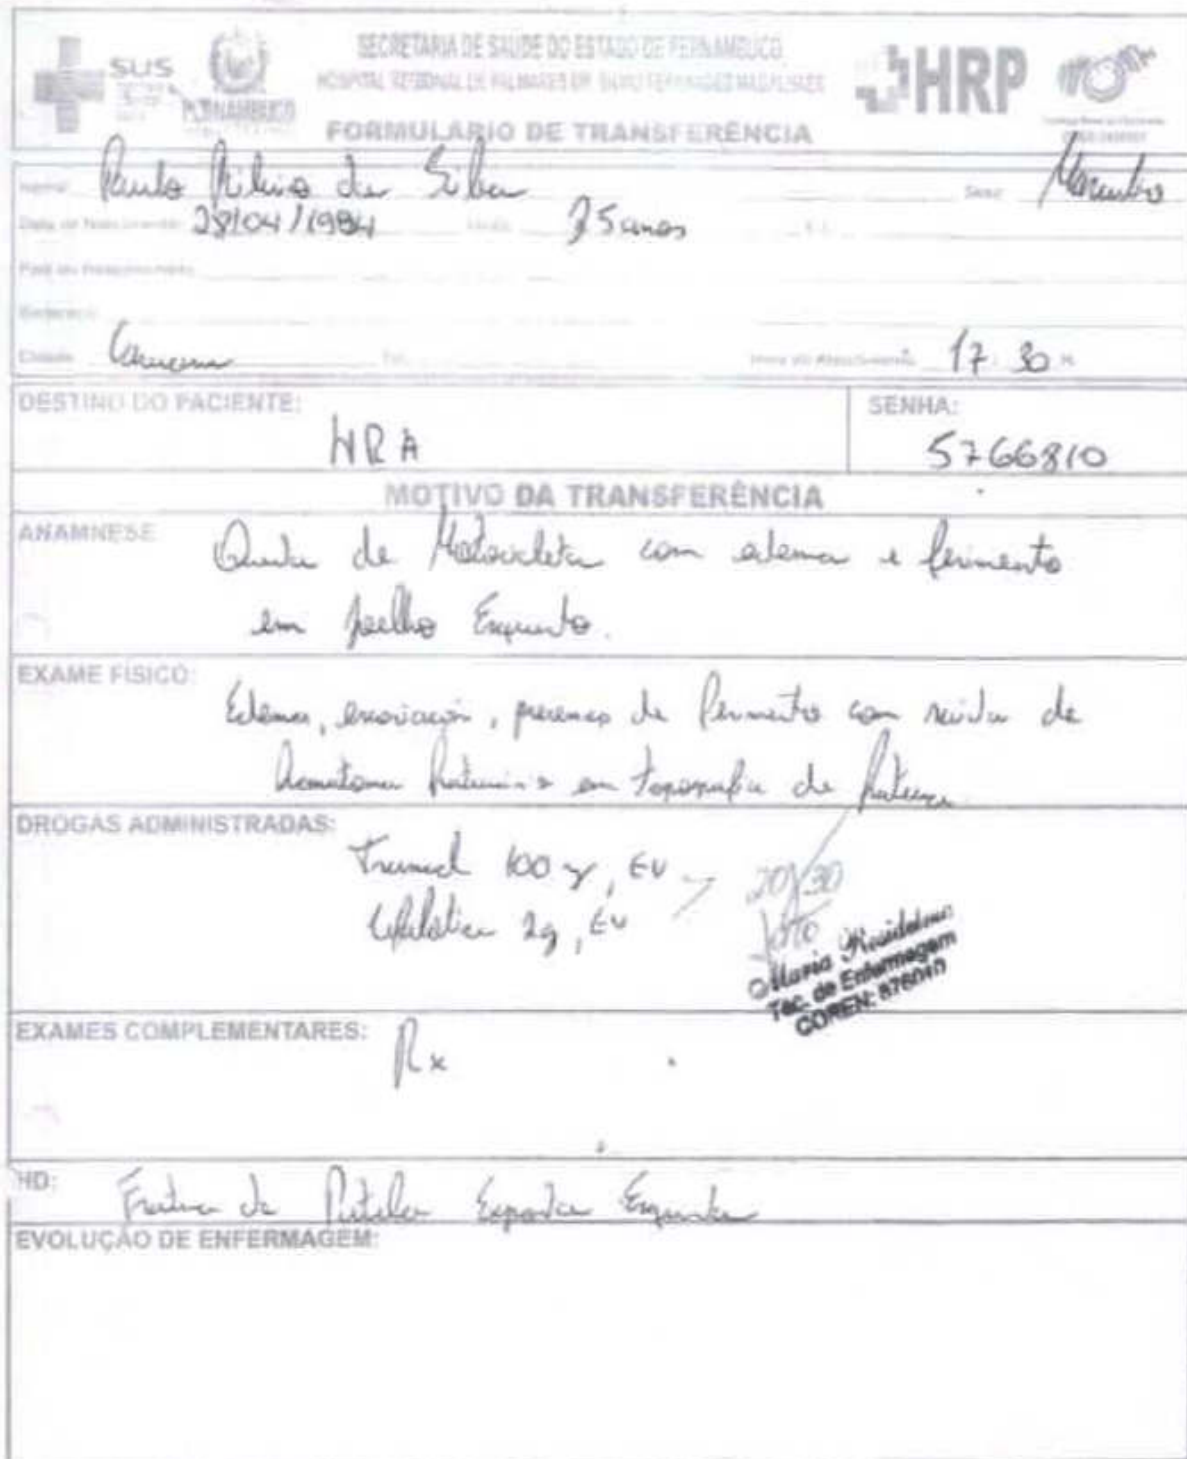 SUS
PERNAMBUCO
SECRETARIA DE SAUDE DO ESTADO DE PERNAMBUCO
HOSPITAL REGIONAL DE PALMARES DR.
HRP
FORMULÁRIO DE TRANSFERÊNCIA
Paulo da Silva Sexo: Masculino
Data de Nascimento: 28/04/1984 35 anos
Endereço:
Cidade: Hora do Atendimento: 17:30 H
DESTINO DO PACIENTE: HRA
SENHA: 5766810
MOTIVO DA TRANSFERÊNCIA
ANAMNESE: Queda de Motocicleta com edema e ferimento
em joelho Esquerdo.
EXAME FÍSICO: Edema, escoriação, presença de ferimento com saída de
hematoma em topografia de
DROGAS ADMINISTRADAS: Tramal 100 , EV 20/30
2g, EV
Maria
Tec. de Enfermagem
COREN: 876010
EXAMES COMPLEMENTARES: Rx
HD: Fratura de Patela Exposta Esquerda
EVOLUÇÃO DE ENFERMAGEM: